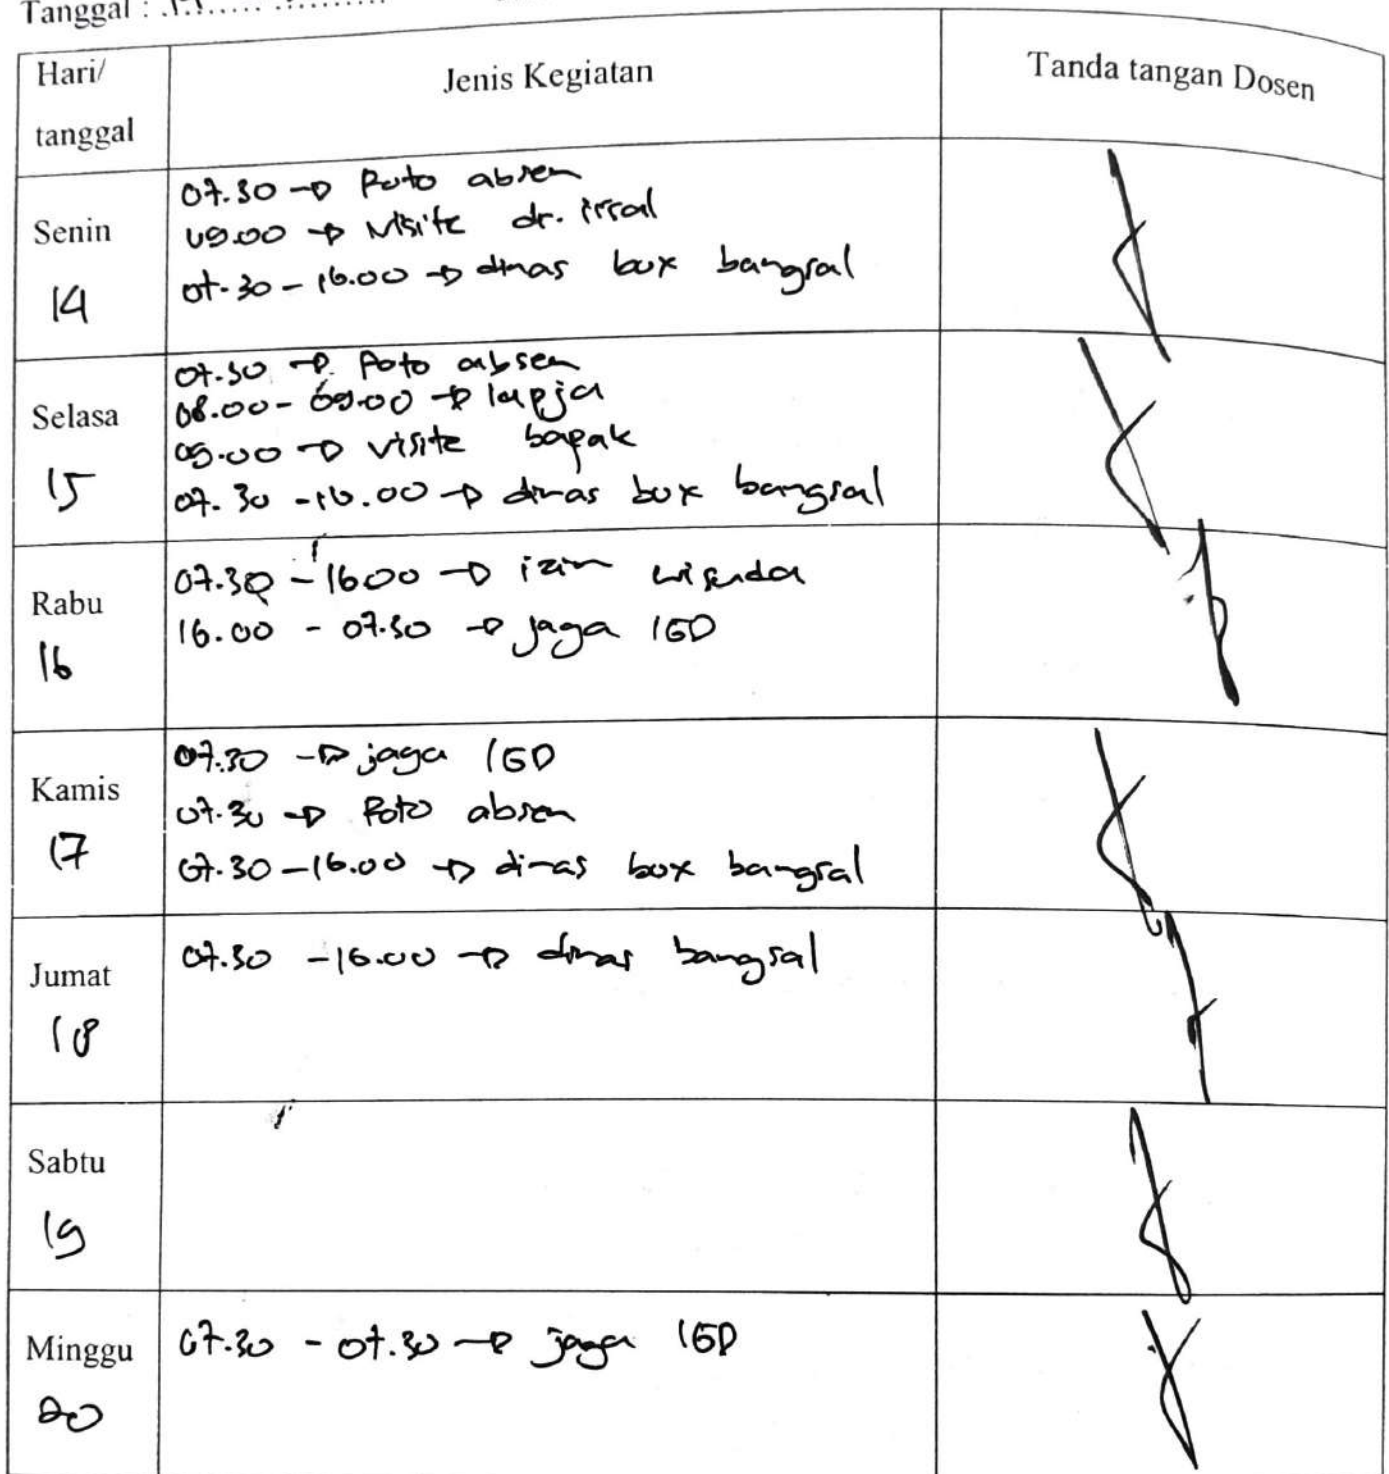 Tanggal :
Hari/
tanggal
Jenis Kegiatan
Tanda tangan Dosen
Senin
14
07.30 → Foto absen
09.00 → visite dr. irsal
07.30 - 16.00 → dinas box bangsal
Selasa
15
07.30 → Foto absen
08.00 - 09.00 → lapja
09.00 → visite bapak
07.30 - 16.00 → dinas box bangsal
Rabu
16
07.30 - 1600 → izin wisuda
16.00 - 07.30 → jaga IGD
Kamis
17
07.30 → jaga IGD
07.30 → Foto absen
07.30 - 16.00 → dinas box bangsal
Jumat
18
07.30 - 16.00 → dinas bangsal
Sabtu
19
Minggu
20
07.30 - 07.30 → jaga IGD